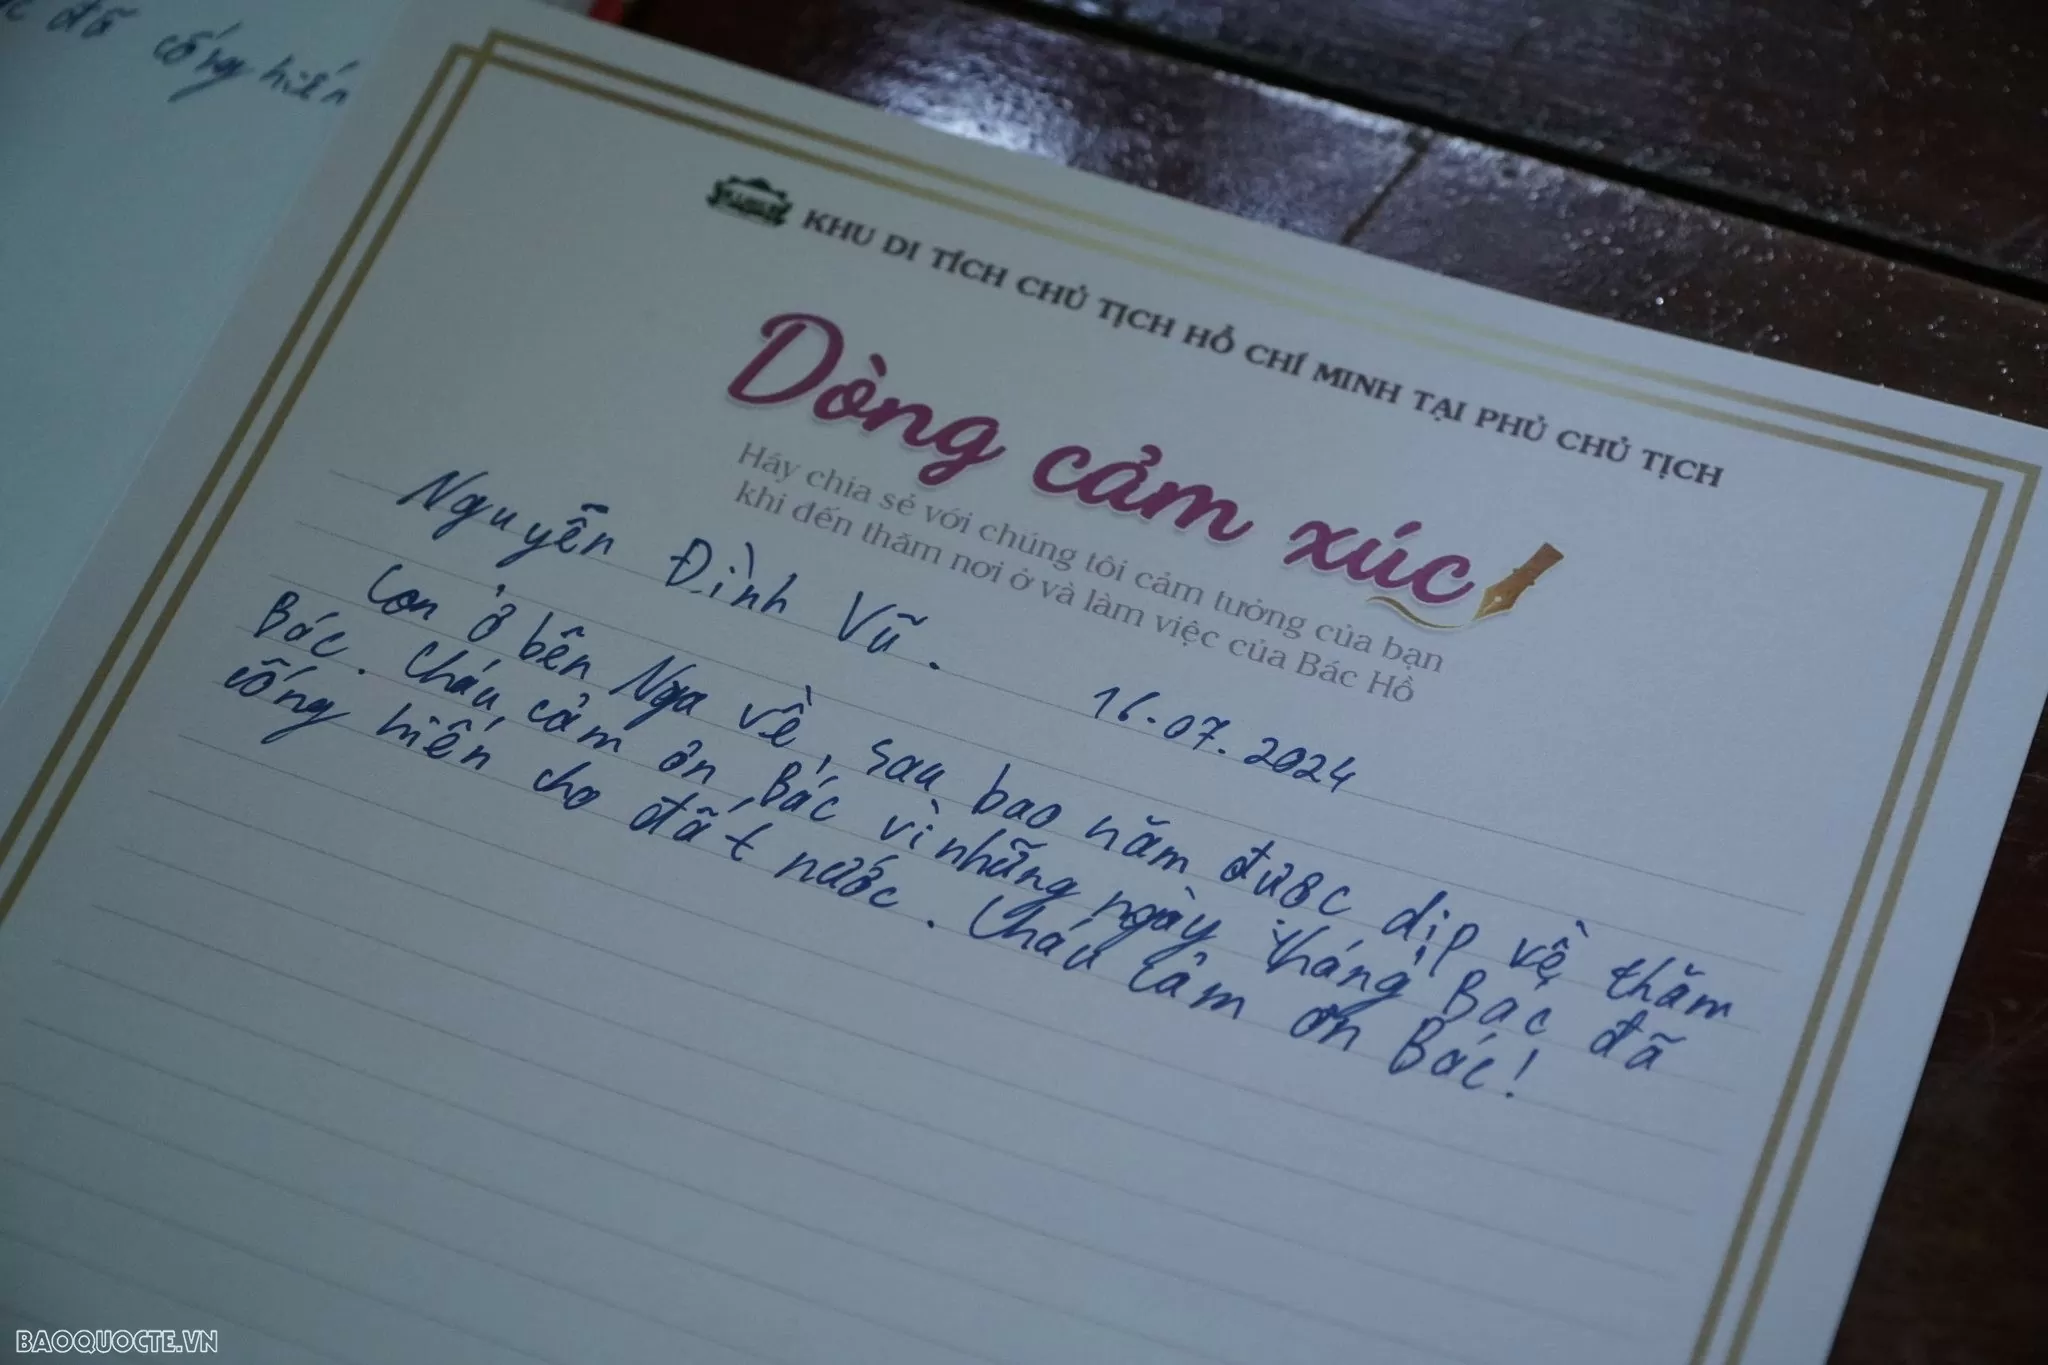 đã cống hiến
KHU DI TÍCH CHỦ TỊCH HỒ CHÍ MINH TẠI PHỦ CHỦ TỊCH
Dòng cảm xúc
Hãy chia sẻ với chúng tôi cảm tưởng của bạn
khi đến thăm nơi ở và làm việc của Bác Hồ
Nguyễn Đình Vũ. 16-07.2024
Con ở bên Nga về, sau bao năm được dịp về thăm
Bác. Cháu cảm ơn Bác vì những ngày tháng Bác đã
cống hiến cho đất nước. Cháu cảm ơn Bác!
BAOQUOCTE.VN